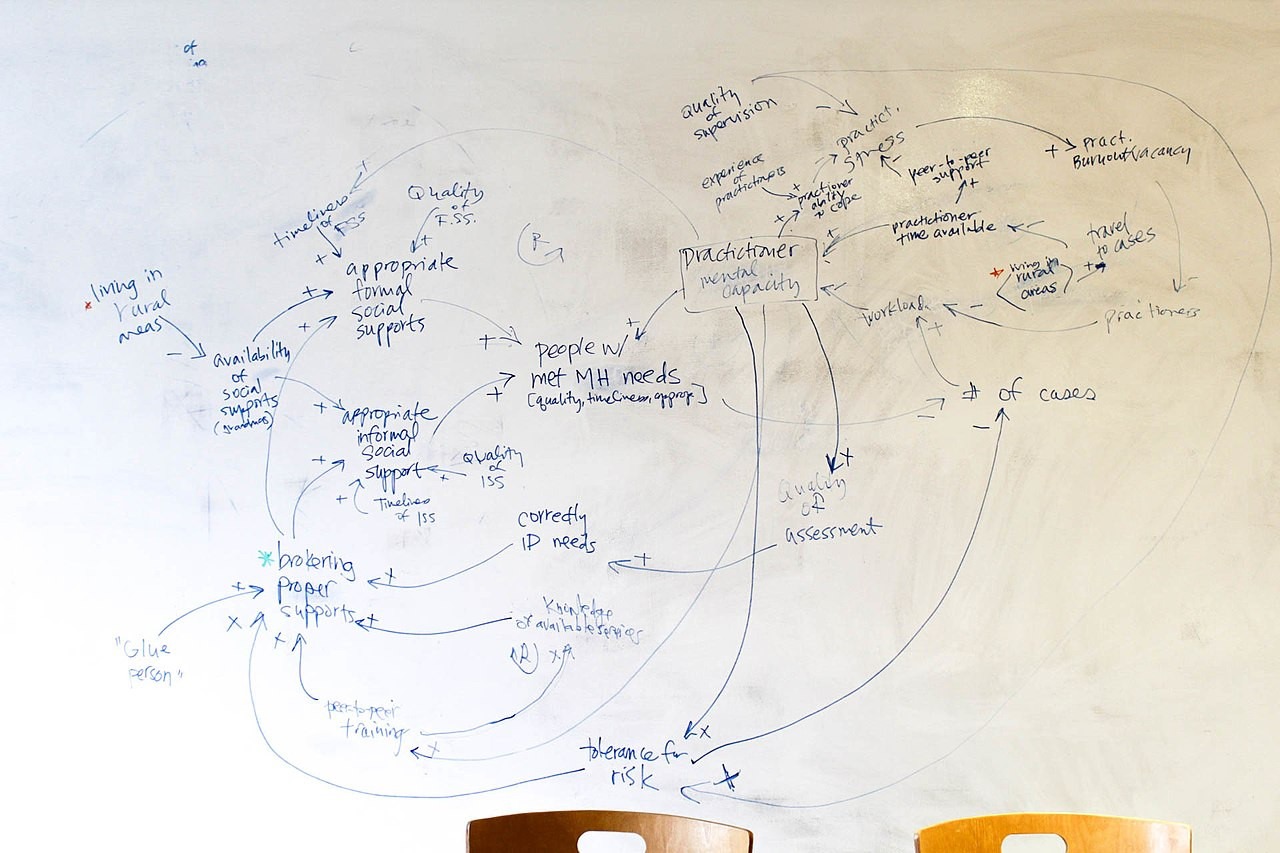 of
Quality
of
supervision
practict.
stress
pract.
Burnout/vacancy
experience
of
practictioners
peer-to-peer
support
practioner
ability
to cope
practictioner
time available
travel
to cases
* living in
rural
areas
workload
practioners
# of cases
practictioner
mental
capacity
timeliness
of FSS
Quality
of
F.S.S.
R
appropriate
formal
social
supports
* living in
rural
areas
availability
of
social
supports
(grandmas)
people w/
met MH needs
[quality, timeliness, approp.]
appropriate
informal
social
support
Quality
of
ISS
Timeliness
of ISS
Quality
of
assessment
correctly
ID needs
* brokering
proper
supports
Knowledge
of available services
R
"Glue
person"
peer-to-peer
training
tolerance for
risk